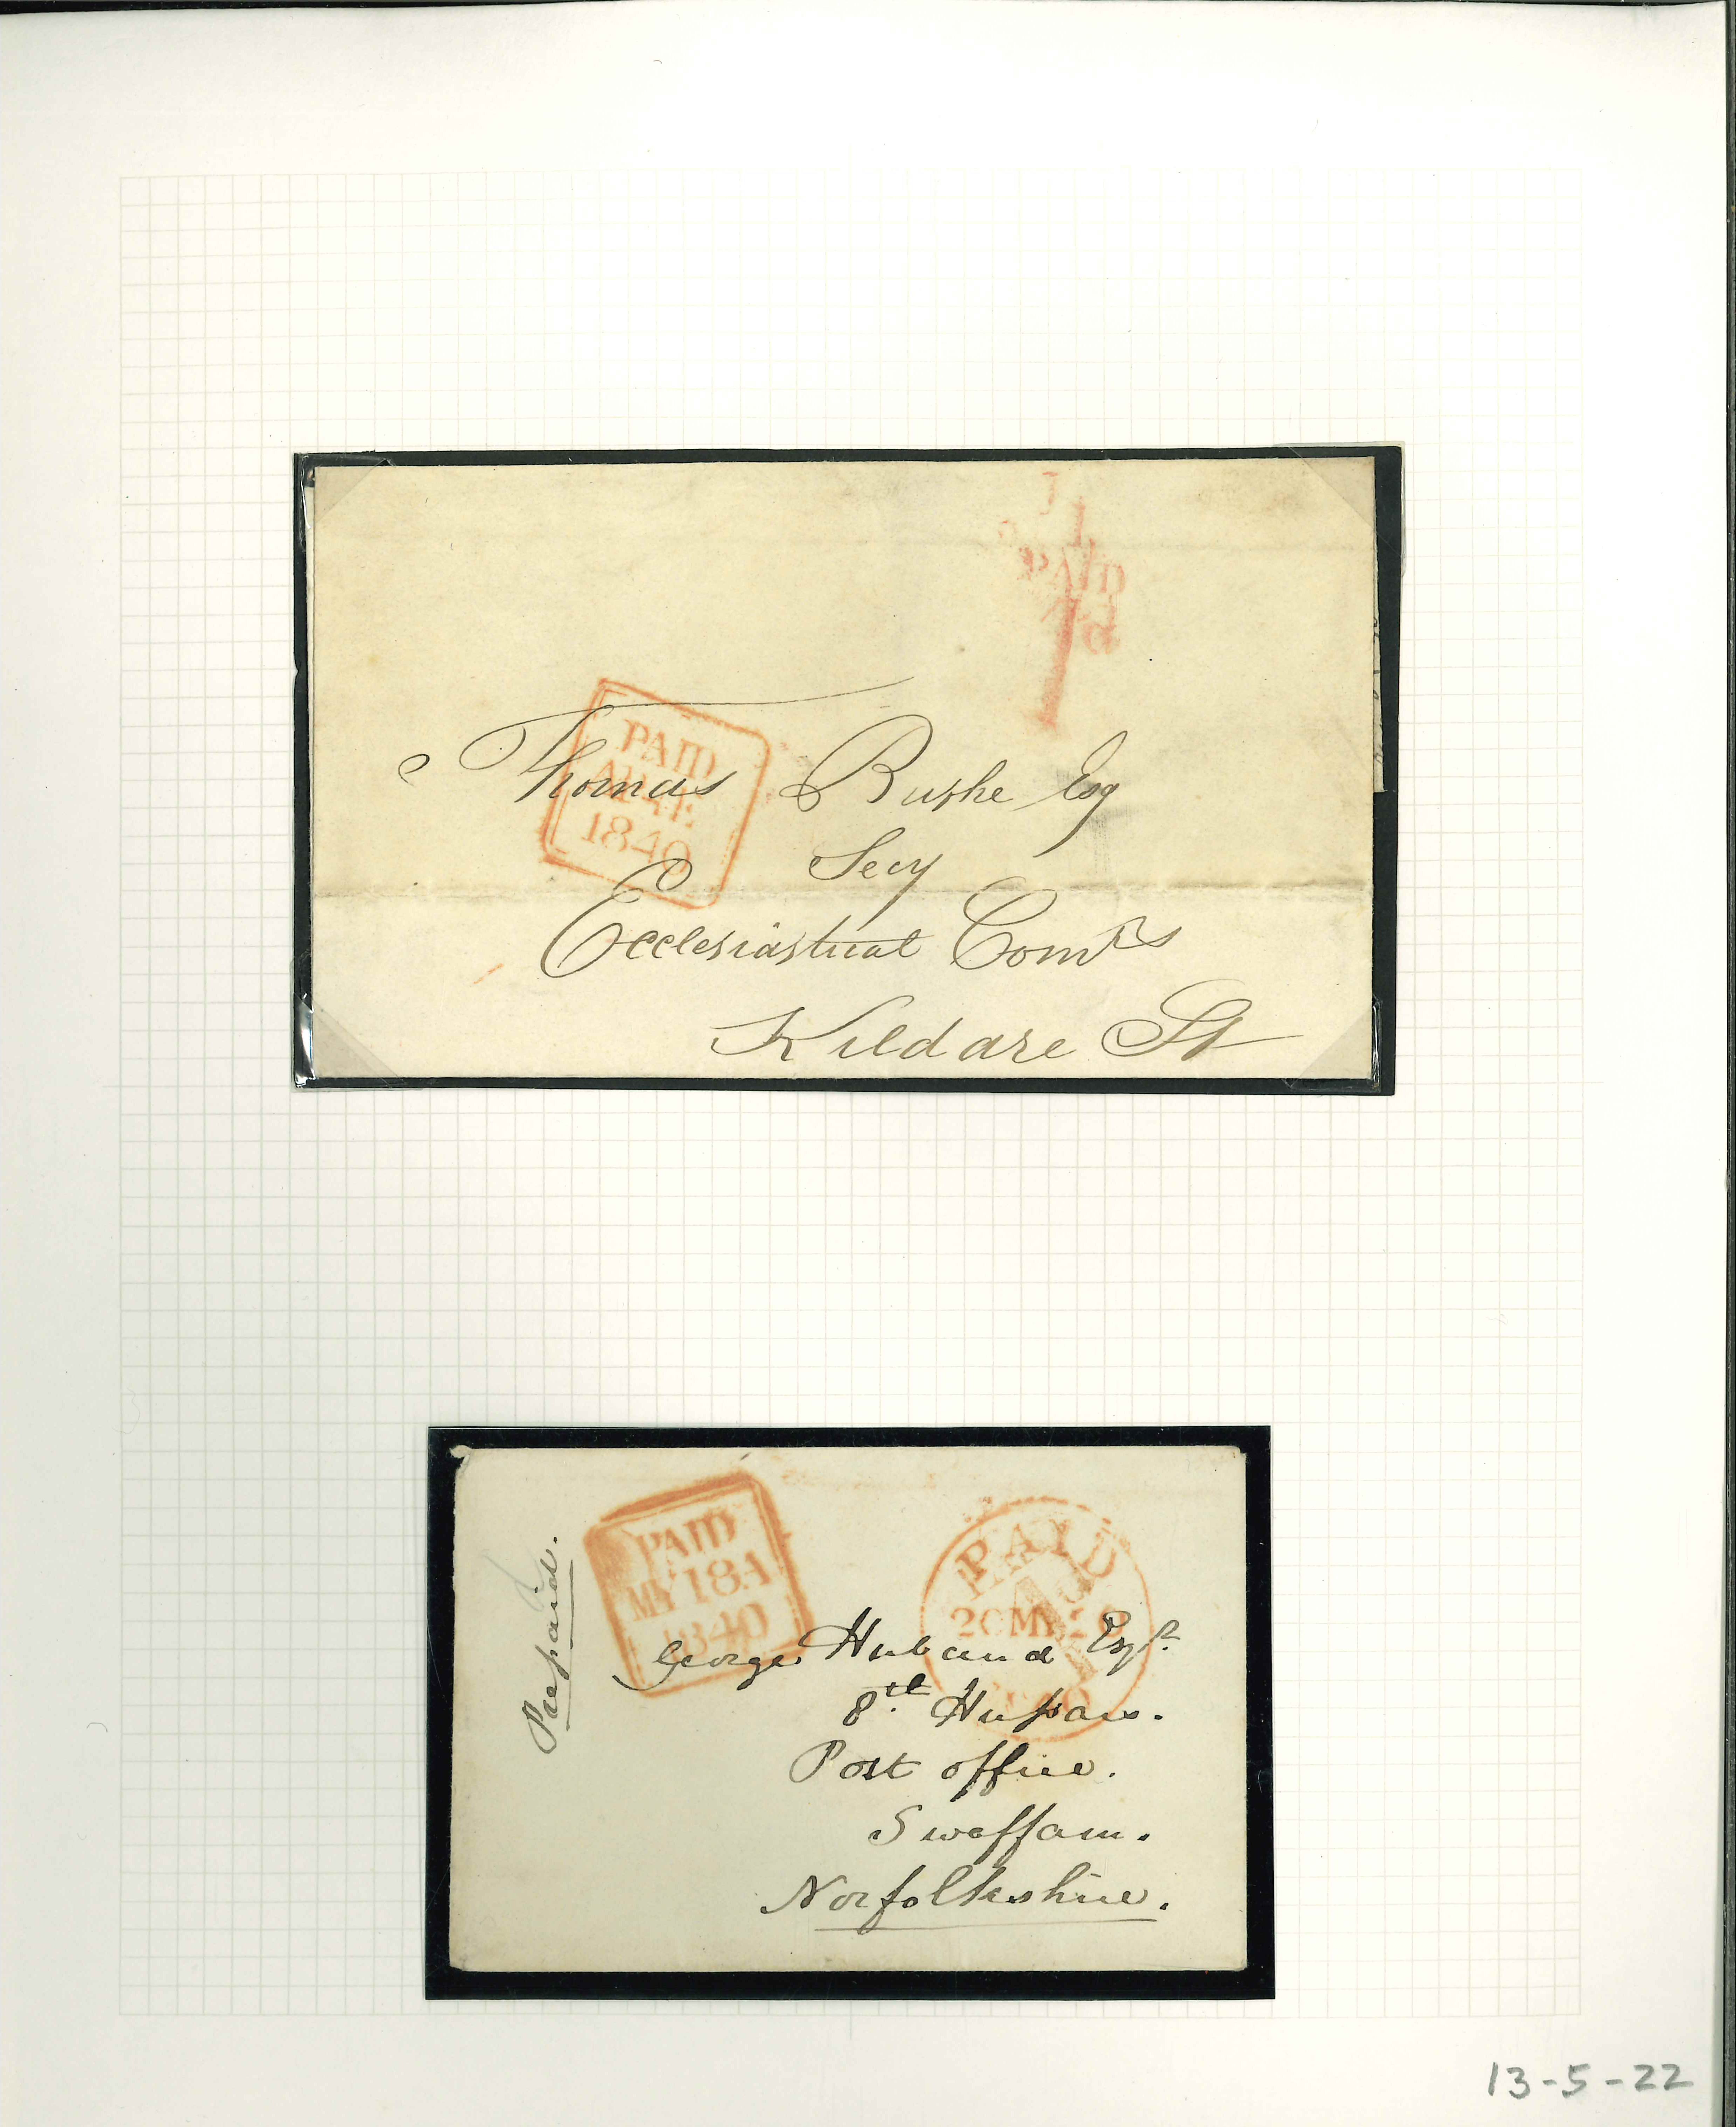 PAID
1d
PAID
1840
Thomas Bushe Esq
Secy
Ecclesiastical Comrs
Kildare St
Prepaid.
PAID
MY 18 A
1840
PAID
20 MY 20
George Huband Esqr.
8th Hussars.
Post office.
Swaffam.
Norfolkshire.
13-5-22